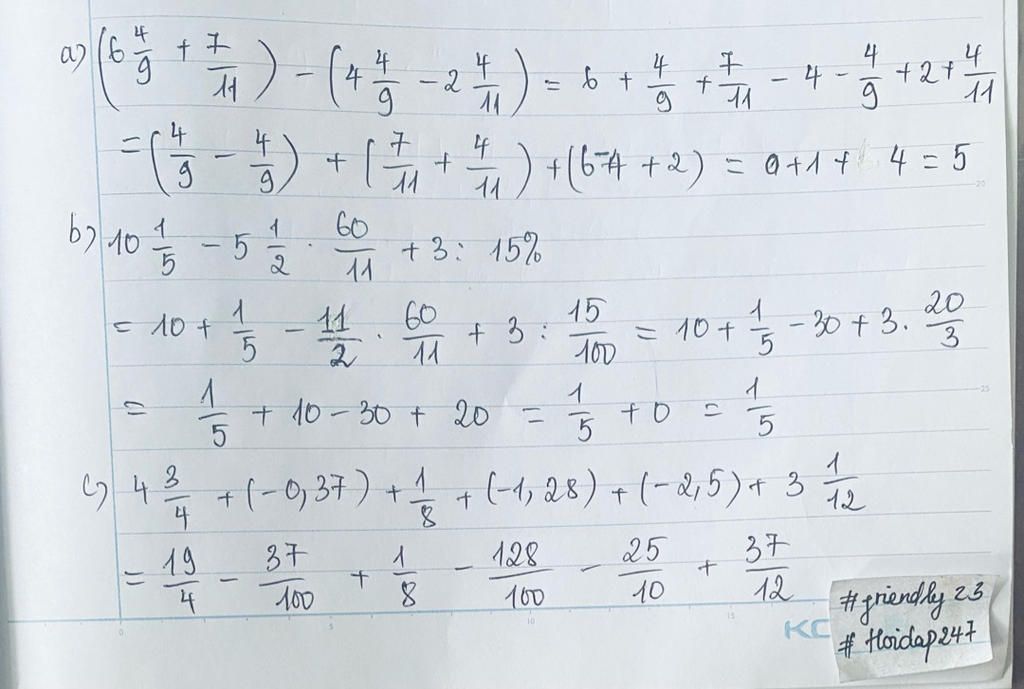 a) (6 4/9 + 7/11) - (4 4/9 - 2 4/11) = 6 + 4/9 + 7/11 - 4 - 4/9 + 2 + 4/11
= (4/9 - 4/9) + (7/11 + 4/11) + (6-4 + 2) = 0+1+ 4 = 5
b) 10 1/5 - 5 1/2 . 60/11 + 3 : 15%
= 10 + 1/5 - 11/2 . 60/11 + 3 : 15/100 = 10 + 1/5 - 30 + 3. 20/3
= 1/5 + 10 - 30 + 20 = 1/5 + 0 = 1/5
c) 4 3/4 + (-0,37) + 1/8 + (-1,28) + (-2,5) + 3 1/12
= 19/4 - 37/100 + 1/8 - 128/100 - 25/10 + 37/12
#friendly23
# Hoidap247
20
25
0
5
10
15